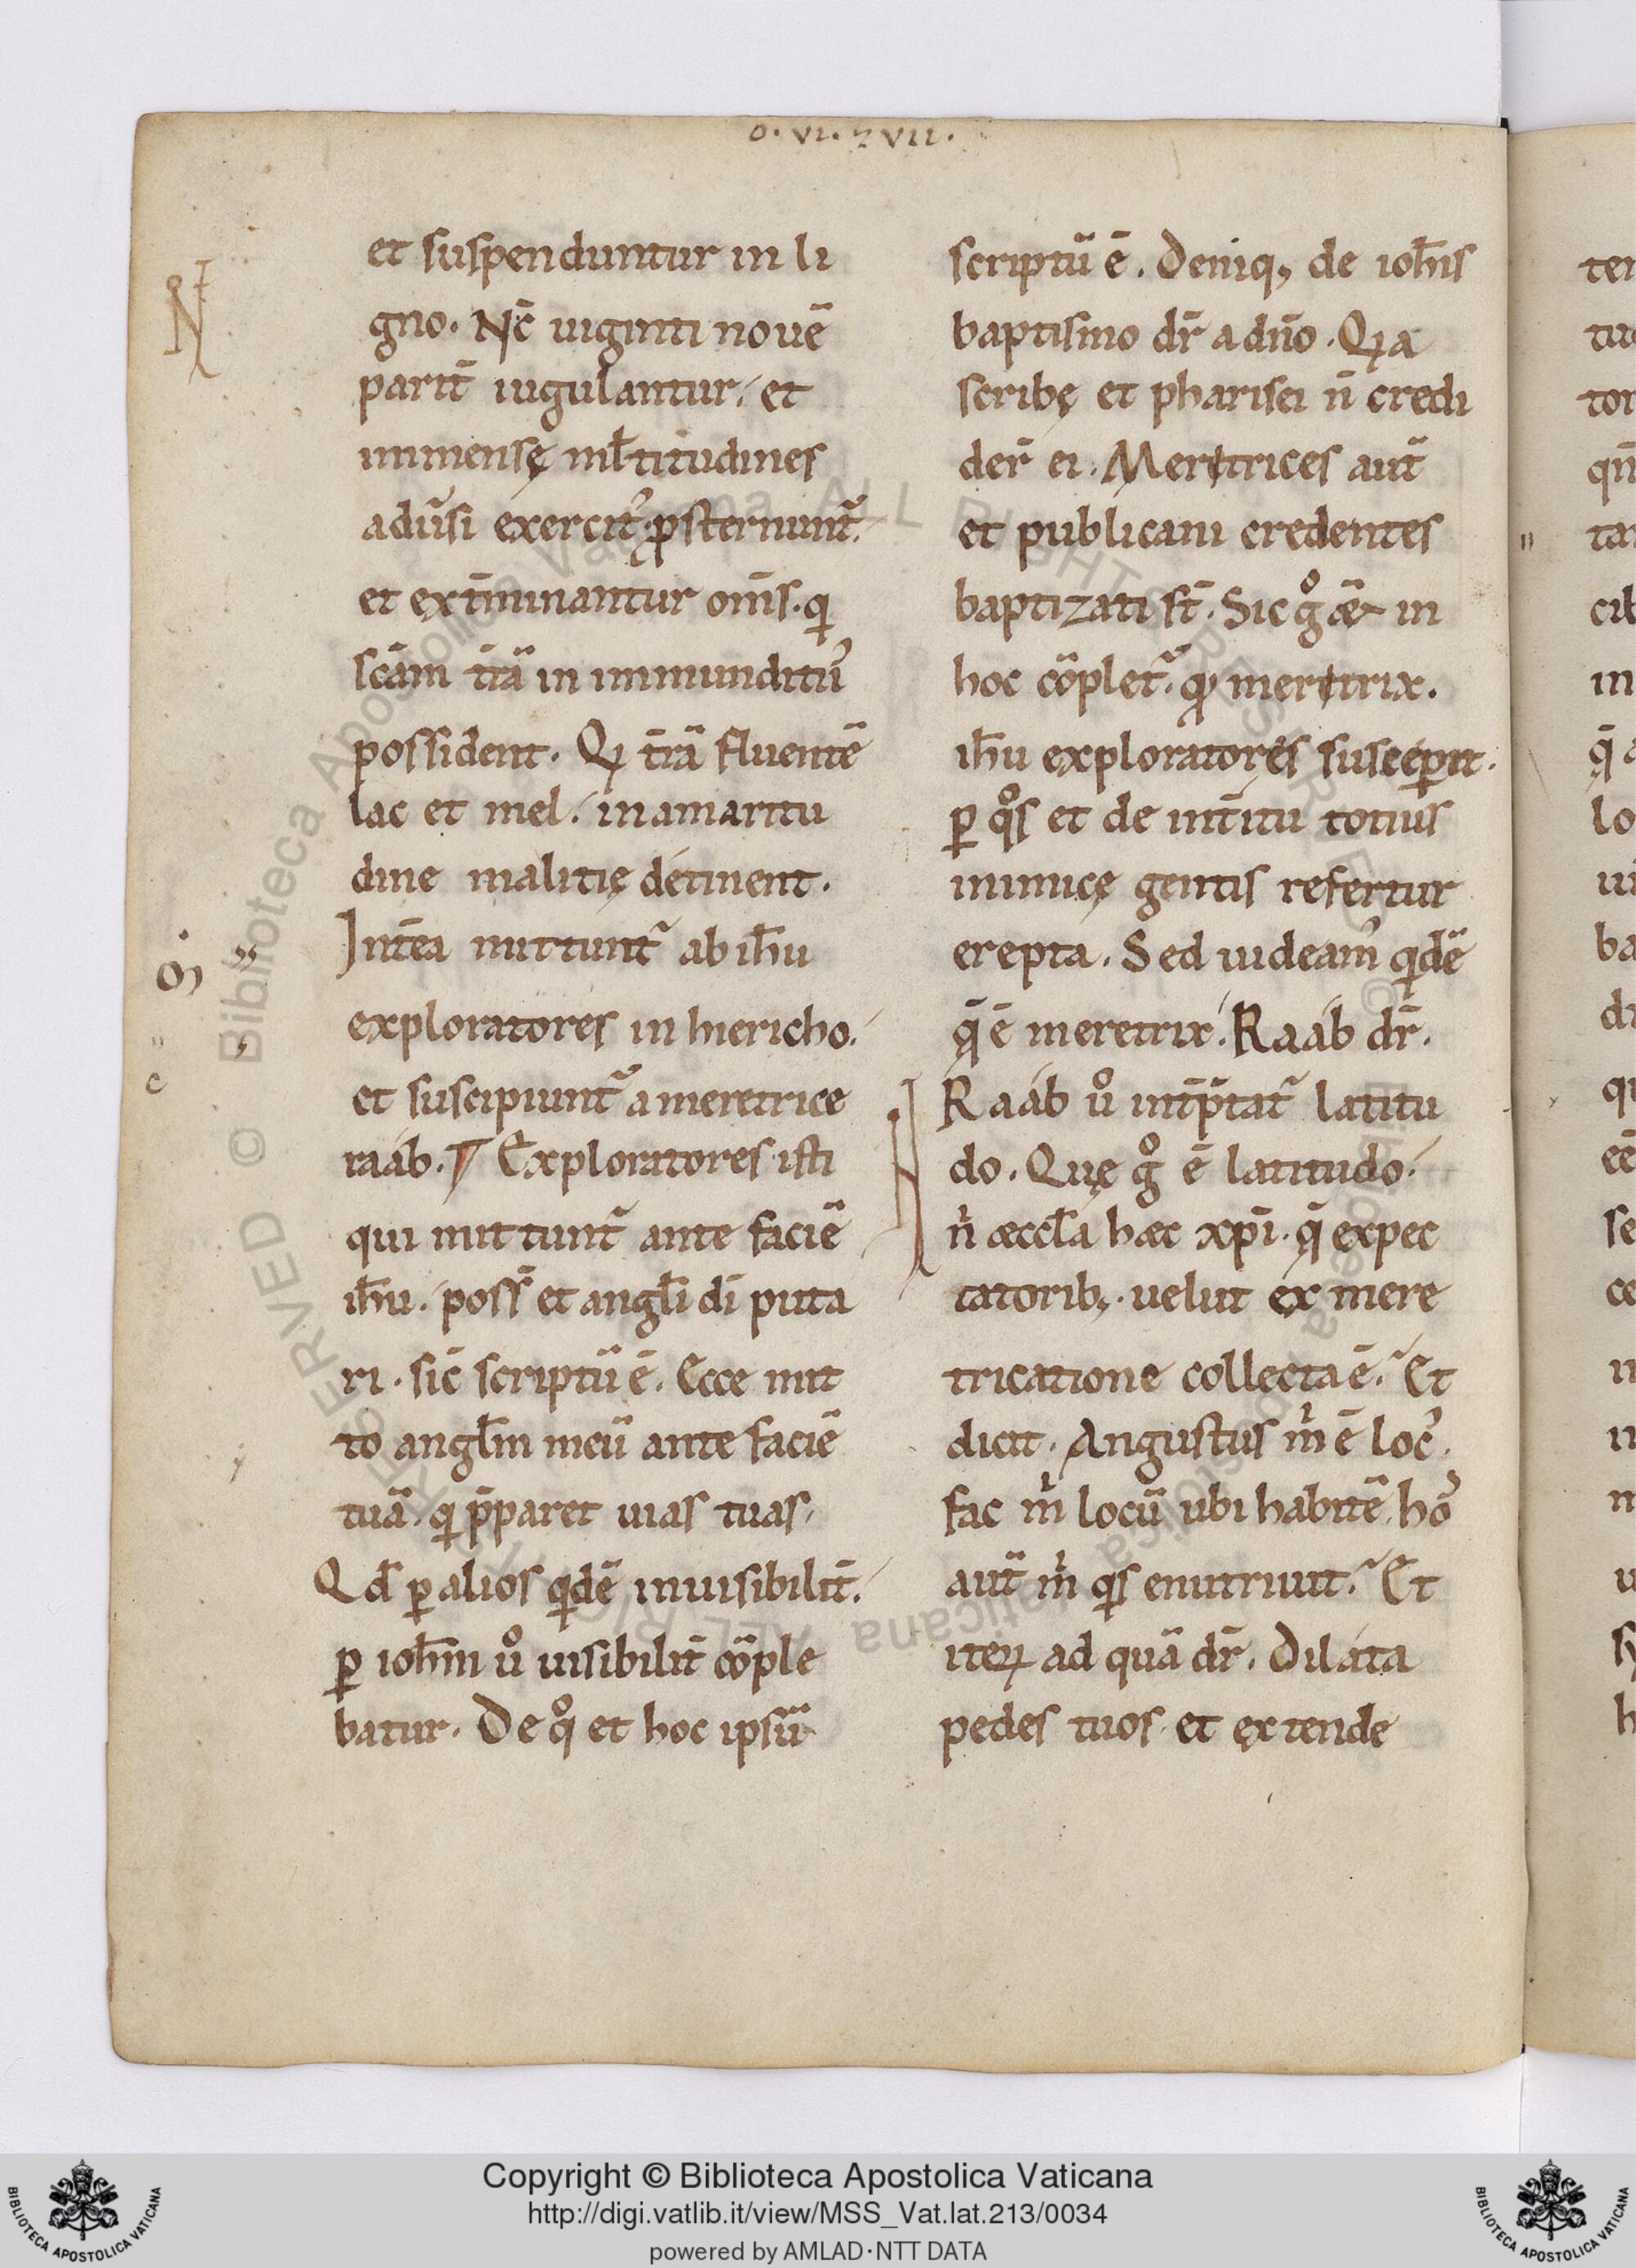 o. vi. ⁊ vii.
et suspenduntur in li
gno. Nc̄ uiginti nouē
parit̄ iugulantur. et
immensę ml̄titudines
adūsi exercit᾽ ꝓsternunt᷑.
et ext̄minantur om̄s. qͥ
scām t̄rā in immunditiis
possident. Qͥ t̄rā fluentē
lac et mel. in amaritu
dine malitię detinent.
Int̄ea mittunt᷑ ab ih̄u
exploratores in hiericho.
et suscipiunt᷑ a meretrice
raab. Exploratores isti
qui mittunt᷑ ante faciē
ih̄u. poss̄ et angl̄i dī puta
ri. sic̄ scriptū ē. Ecce mit
to angl̄m meū ante faciē
tuā. qͥ p̄paret uias tuas.
Qd̄ ꝑ alios qͥdē inuisibilit̄.
ꝑ ioh̄m uͦ uisibilit̄ cōple
batur. De qͦ et hoc ipsū
scriptū ē. Deniq; de ioh̄is
baptismo dr̄ a dn̄o. Qͥa
scribę et pharisei n̄ credi
der̄ ei. Meretrices aut̄
et publicani credentes
baptizati st̄. Sic gͦ & in
hoc cōplet᷑. qͩ meretrix.
ih̄u exploratores susceꝑit.
ꝑ qͦs et de int̄itu totius
inimicę gentis refertur
erepta. Sed uideam᾽ qͥdē
q̄ ē meretrix. Raab dr̄.
Raab uͦ int̄p̄tat᷑ latitu
do. Quę gͦ ē latitudo.
nͥ æccl̄a hæc xp̄i. q̄ expec
tatorib;. uelut ex mere
tricatione collecta ē. Et
dicit. Angustus mͥ ē loc᾽.
fac mͥ locū ubi habitē. hos
aut̄ mͥ qͥs enutriuit. Et
iteꝝ ad quā dr̄. Dilata
pedes tuos et extende
Copyright © Biblioteca Apostolica Vaticana
http://digi.vatlib.it/view/MSS_Vat.lat.213/0034
powered by AMLAD·NTT DATA
BIBLIOTECA APOSTOLICA VATICANA
BIBLIOTECA APOSTOLICA VATICANA